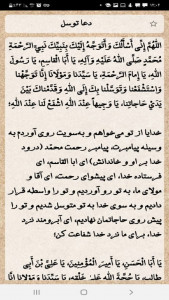 دعا توسل
اَللّهُمَّ اِنّی اَسْأَلُکَ وَاَتَوَجَّهُ اِلَیْکَ بِنَبِیِّکَ نَبِیِّ الرَّحْمَةِ
مُحَمَّدٍ صَلَّی اللّهُ عَلَیْهِ وَآلِهِ، یَا اَبَا الْقَاسِمِ، یَا رَسُولَ
اللّهِ، یَا اِمَامَ الرَّحْمَةِ، یَا سَیِّدَنَا وَمَوْلَانَا اِنَّا تَوَجَّهْنَا
وَاسْتَشْفَعْنَا وَتَوَسَّلْنَا بِکَ اِلَی اللّهِ وَقَدَّمْنَاکَ بَیْنَ
یَدَیْ حَاجَاتِنَا، یَا وَجِیهاً عِنْدَ اللّهِ اِشْفَعْ لَنَا عِنْدَ اللّهِ؛
خدایا از تو می‌خواهم و به‌سویت روی آوردم به
وسیله پیامبرت، پیامبر رحمت محمد (درود
خدا بر او و خاندانش) ای ابا القاسم، ای
فرستاده خدا، ای پیشوای رحمت، ای آقا و
مولای ما، به تو رو آوردیم و تو را واسطه قرار
دادیم و به سوی خدا به تو متوسل شدیم و تو را
پیش روی حاجاتمان نهادیم، ای آبرومند نزد
خدا، برای ما نزد خدا شفاعت کن؛
یَا اَبَا الْحَسَنِ، یَا اَمِیرَ الْمُؤْمِنِینَ، یَا عَلِیَّ بْنَ اَبِی
طَالِبٍ، یَا حُجَّةَ اللّهِ عَلَی خَلْقِهِ، یَا سَیِّدَنَا وَمَوْلَانَا اِنَّا